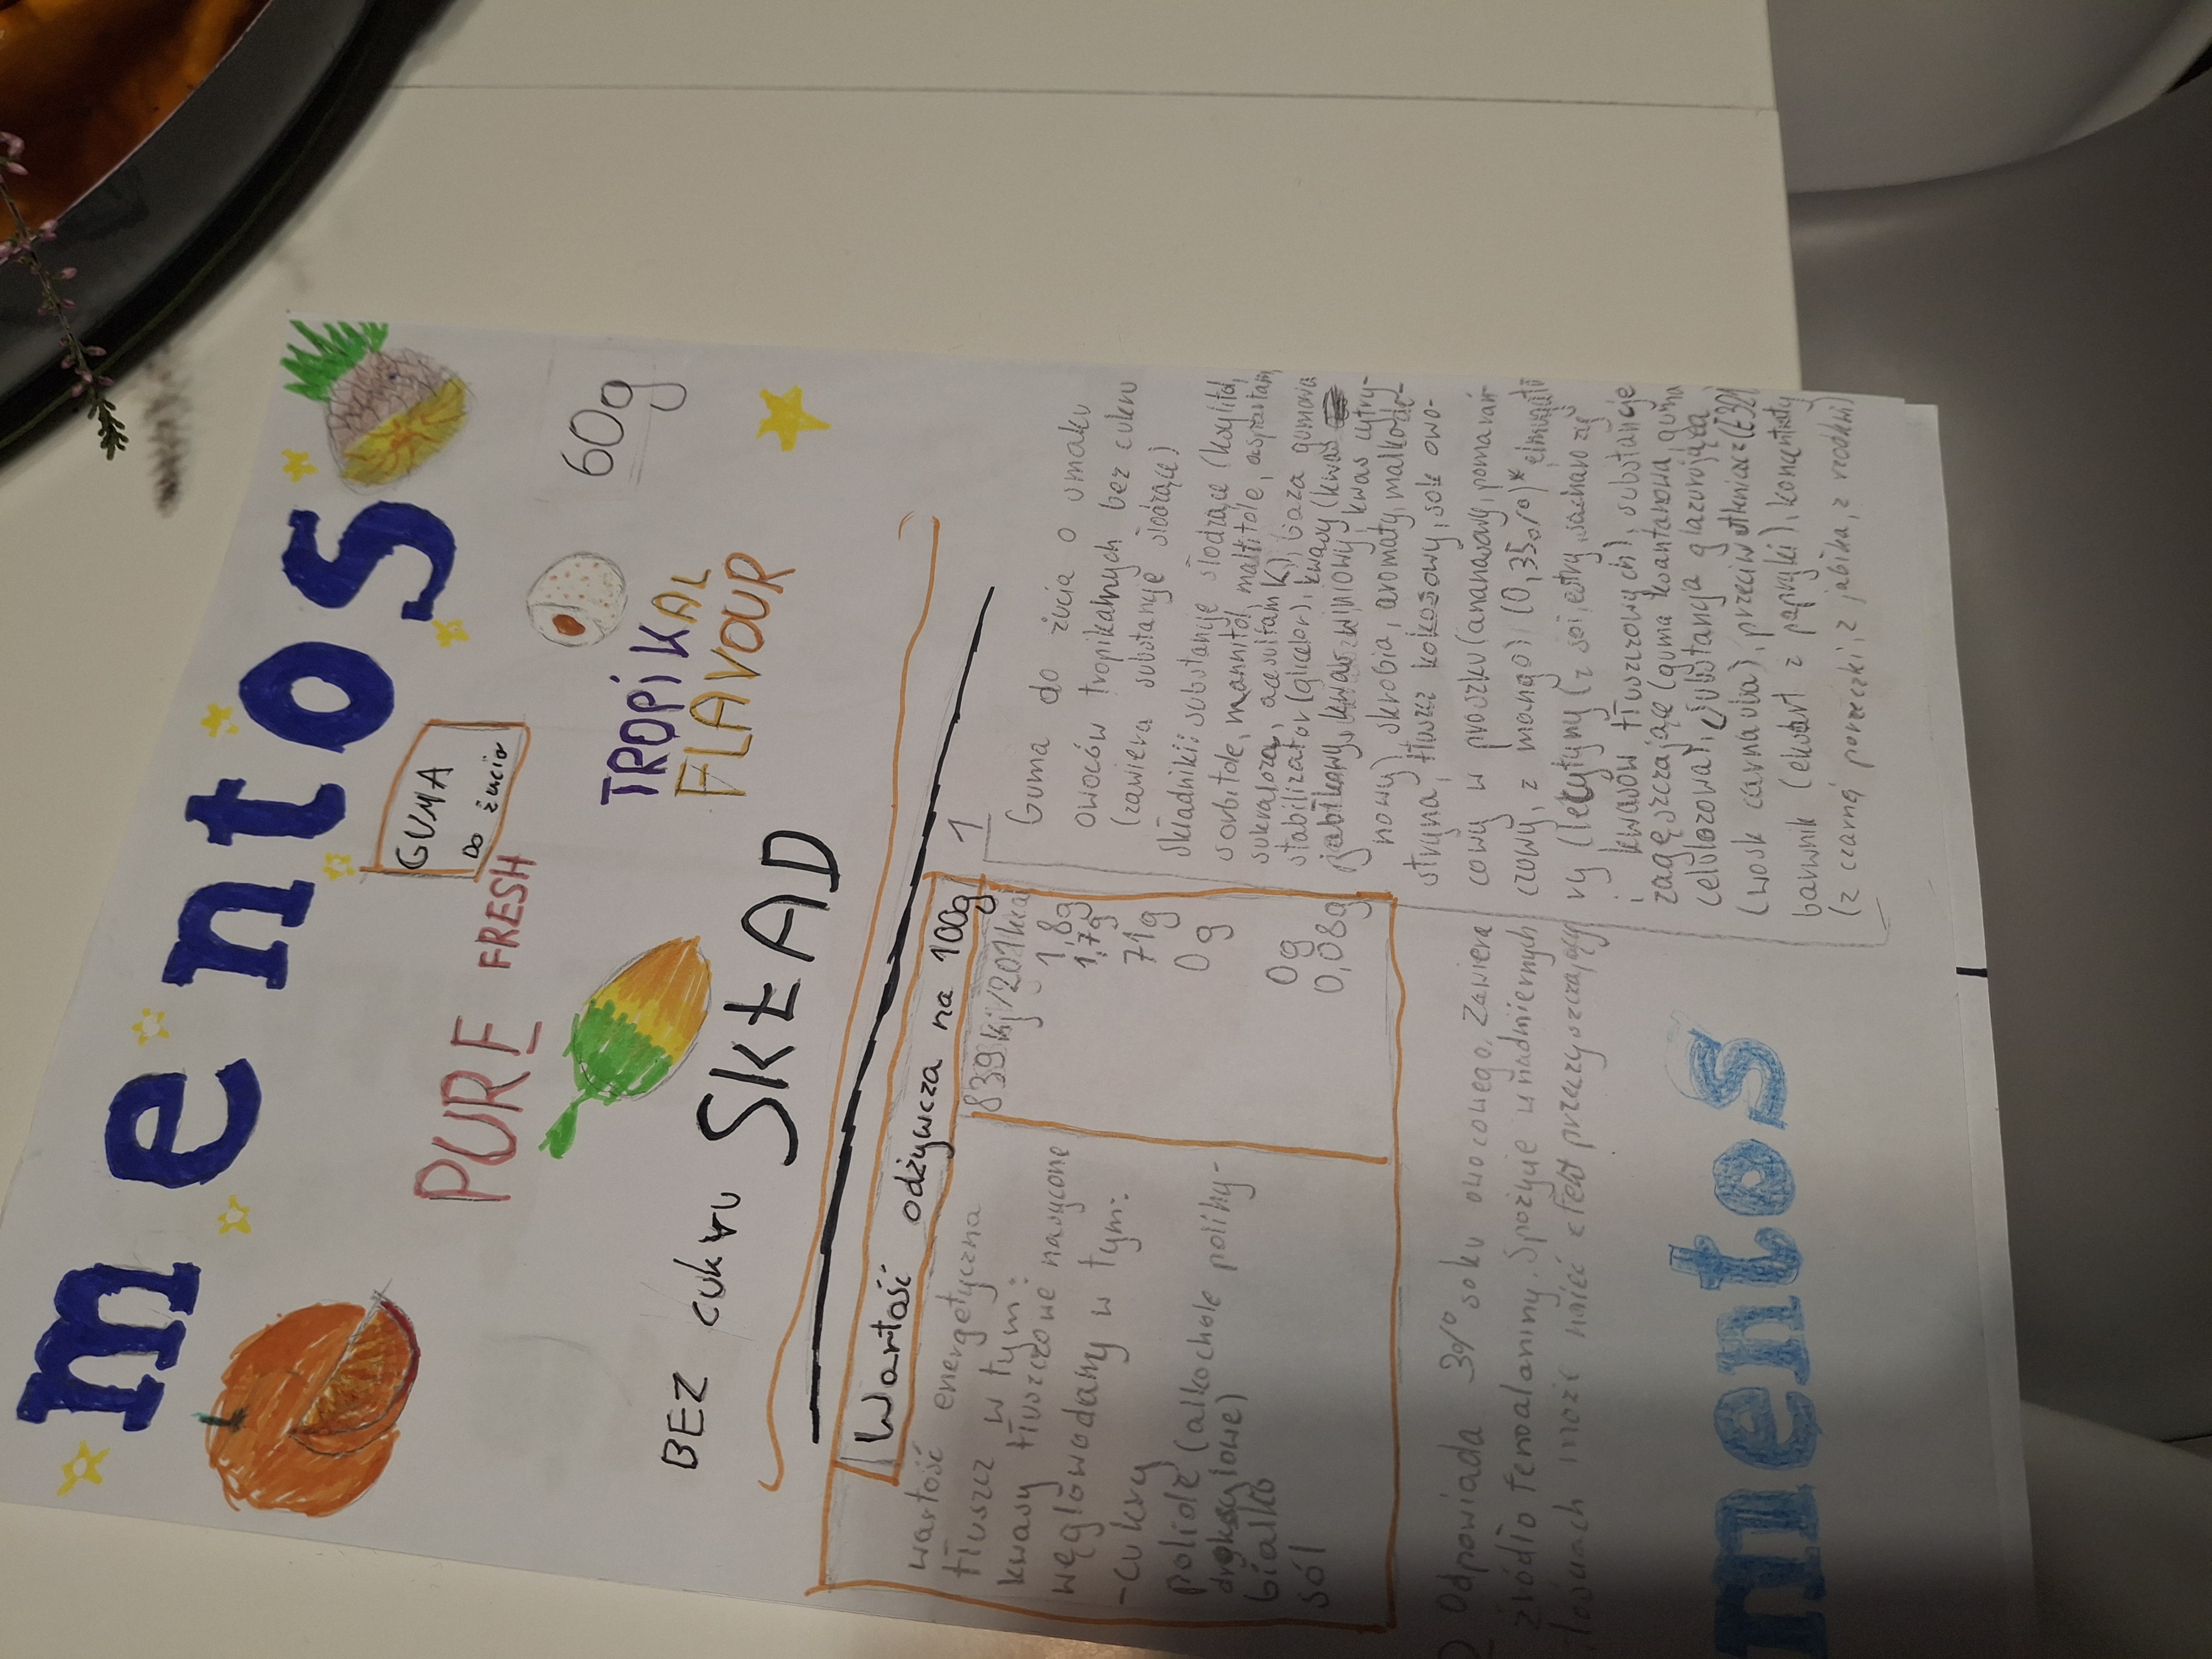 mentos
GUMA
Do żucia
PURE FRESH
60g
TROPiKAL
FLAVOUR
BEZ cukru
SKŁAD
Wartość odżywcza na 100g
wartość energetyczna 839kj/201kcal
tłuszcz w tym: 1,8g
kwasy tłuszczowe nasycone 1,7g
węglowodany w tym: 71g
-cukry 0g
poliole (alkochole polihy-
droksylowe)
białko 0g
sól 0,08g
1
Guma do żucia o smaku
owoców tropikalnych bez cukru
(zawiera substancje słodzące)
składniki: substancje słodzące (ksylitol,
sorbitole, mannitol, maltitole, aspartam,
sukraloza, acesulfam K), baza gumowa
stabilizator (glicelor), kwasy (kwas
jabłkowy, kwas winiowy, kwas cytry-
nowy) skrobia, aromaty, maltode-
stryna, tłuszcz kokosowy, sok owo-
cowy w proszku (ananasowy, pomarań-
czowy, z mango) (0,35%)* emulgato
ry (lecytyny (z soi estry sacharozy
i kwasów tłuszczowych), substancje
zagęszczające (guma ksantanowa, guma
celulozowa), substancja glazurująca
(wosk carnauba), przeciwutleniacz (E321
barwnik (ekstrakt z papryki), koncentraty
(z czarnej porzeczki, z jabłka, z rzodkwi)
Odpowiada 3% soku owocowego. Zawiera
źródło fenoalaniny. Spożycie w nadmiernych
ilościach może mieć efekt przeczyszczający
mentos